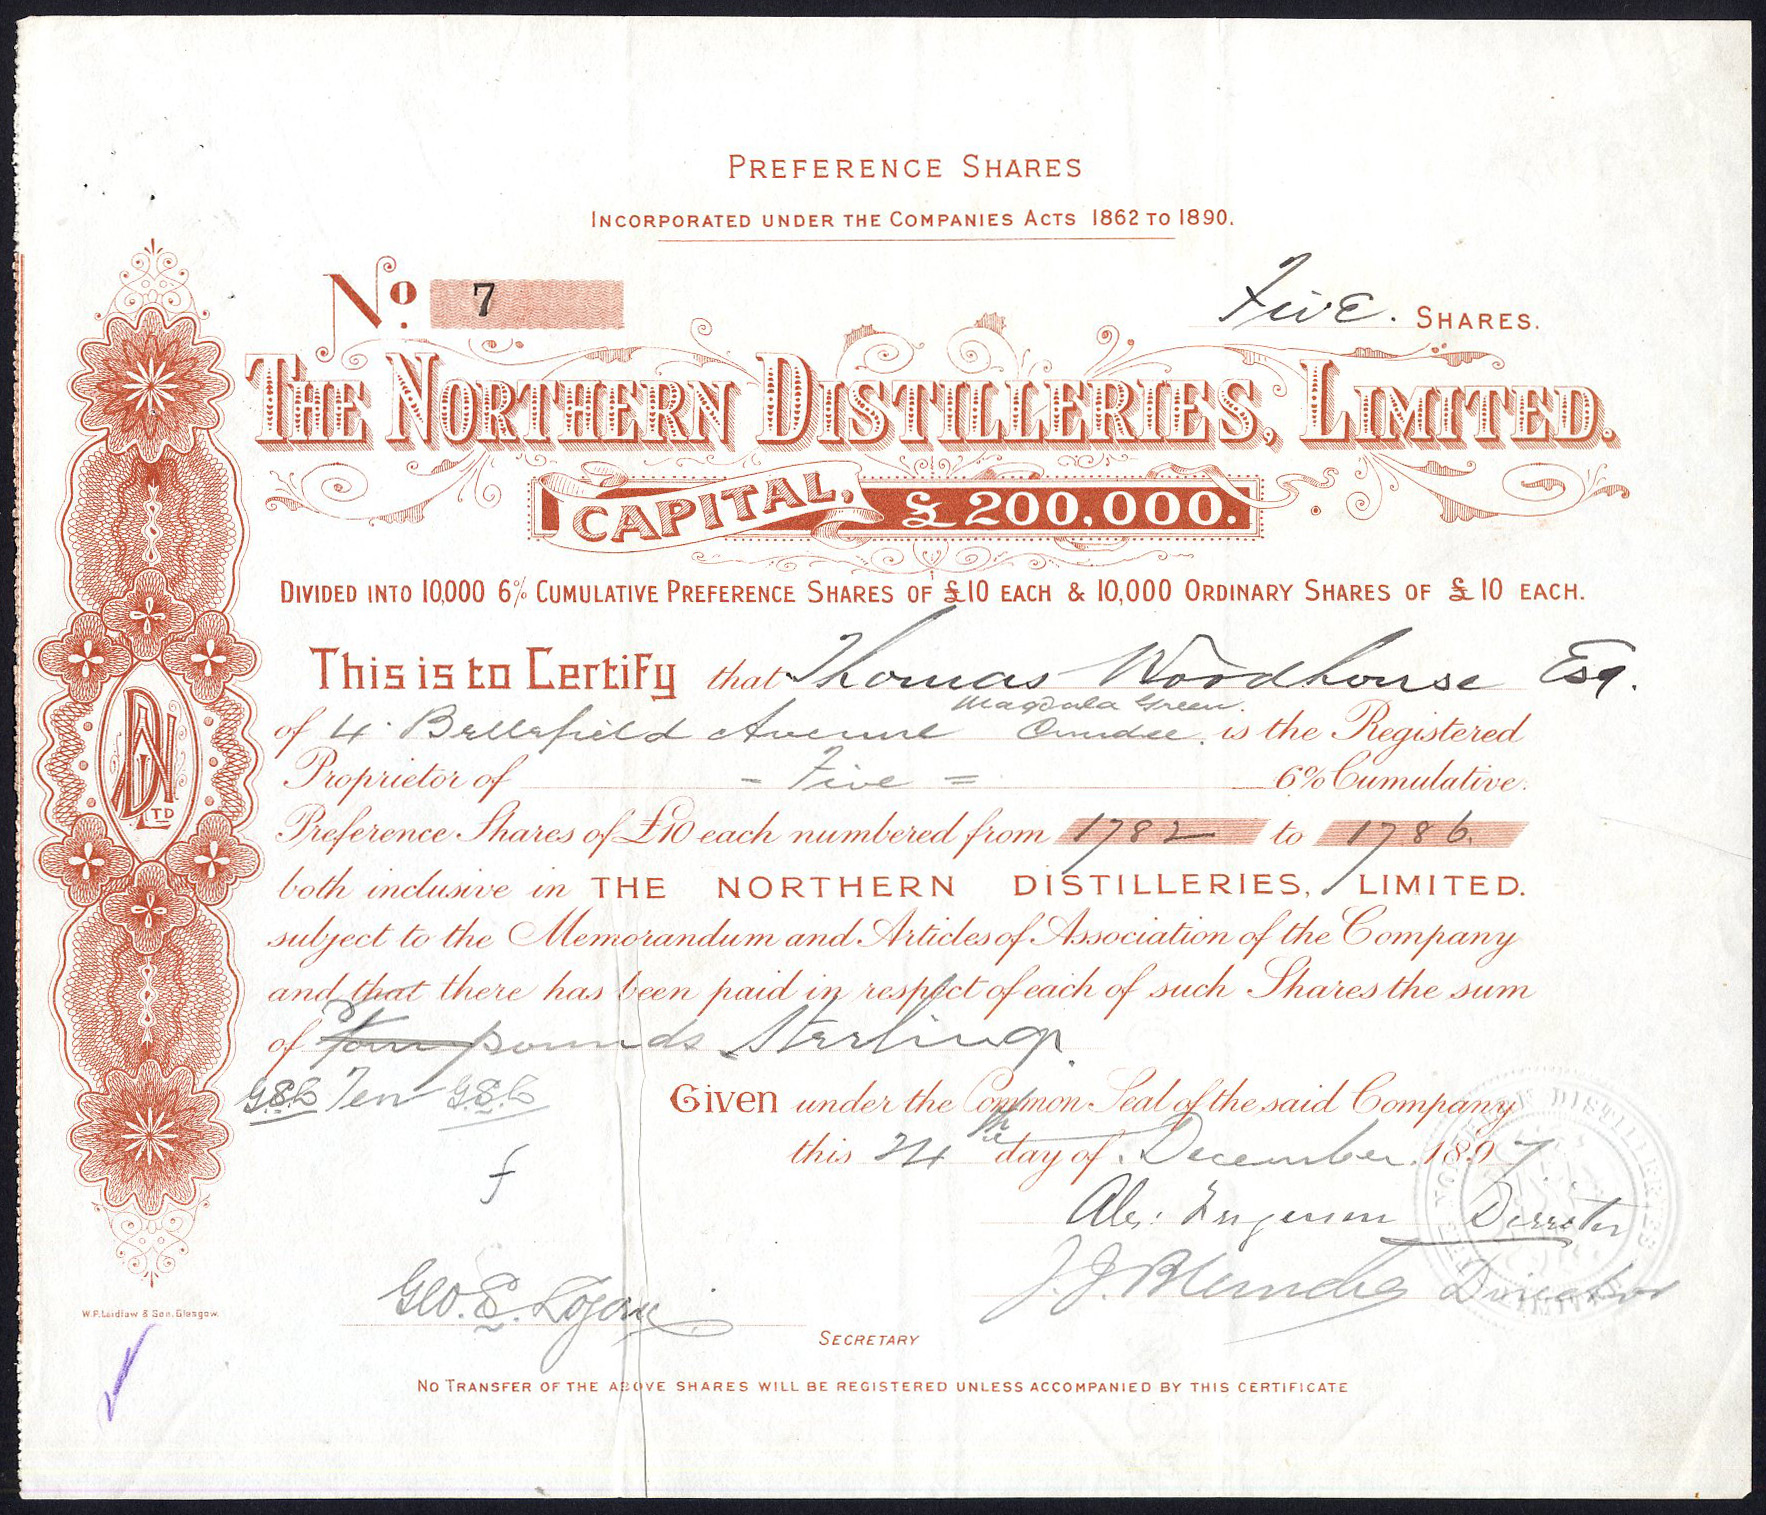 PREFERENCE SHARES
INCORPORATED UNDER THE COMPANIES ACTS 1862 TO 1890.
No. 7
Five. SHARES.
THE NORTHERN DISTILLERIES, LIMITED.
CAPITAL, £200,000.
DIVIDED INTO 10,000 6% CUMULATIVE PREFERENCE SHARES OF £10 EACH & 10,000 ORDINARY SHARES OF £10 EACH.
This is to Certify that Thomas Woodhouse Esq.
Magdala Green.
of 4 Bellefield Avenue Dundee. is the Registered
Proprietor of = Five = 6% Cumulative.
Preference Shares of £10 each numbered from 1782 to 1786.
both inclusive in THE NORTHERN DISTILLERIES, LIMITED.
subject to the Memorandum and Articles of Association of the Company
and that there has been paid in respect of each of such Shares the sum
of Four pounds Sterling.
G.E.L. Ten G.E.L.
Given under the Common Seal of the said Company
this 24th day of December 1897
Alex: Ferguson Director
J. J. Blanche Director
Geo. E. Logan
SECRETARY
NO TRANSFER OF THE ABOVE SHARES WILL BE REGISTERED UNLESS ACCOMPANIED BY THIS CERTIFICATE
DN LTD
W.P. Laidlaw & Son. Glasgow.
THE NORTHERN DISTILLERIES LIMITED